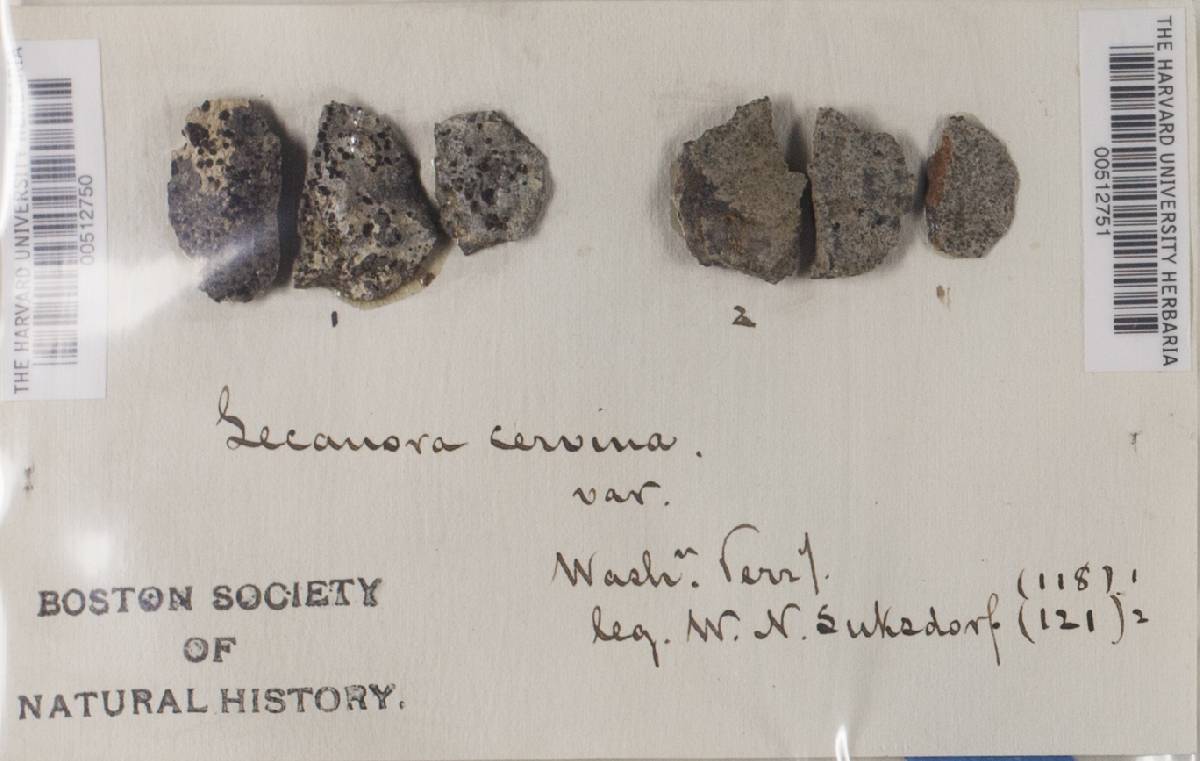 THE HARVARD UNIVERSITY
00512750
THE HARVARD UNIVERSITY HERBARIA
00512751
1
2
Lecanora cervina.
var.
Washn. Terry.
(118) 1
leg. W. N. Suksdorf (121) 2
BOSTON SOCIETY
OF
NATURAL HISTORY.